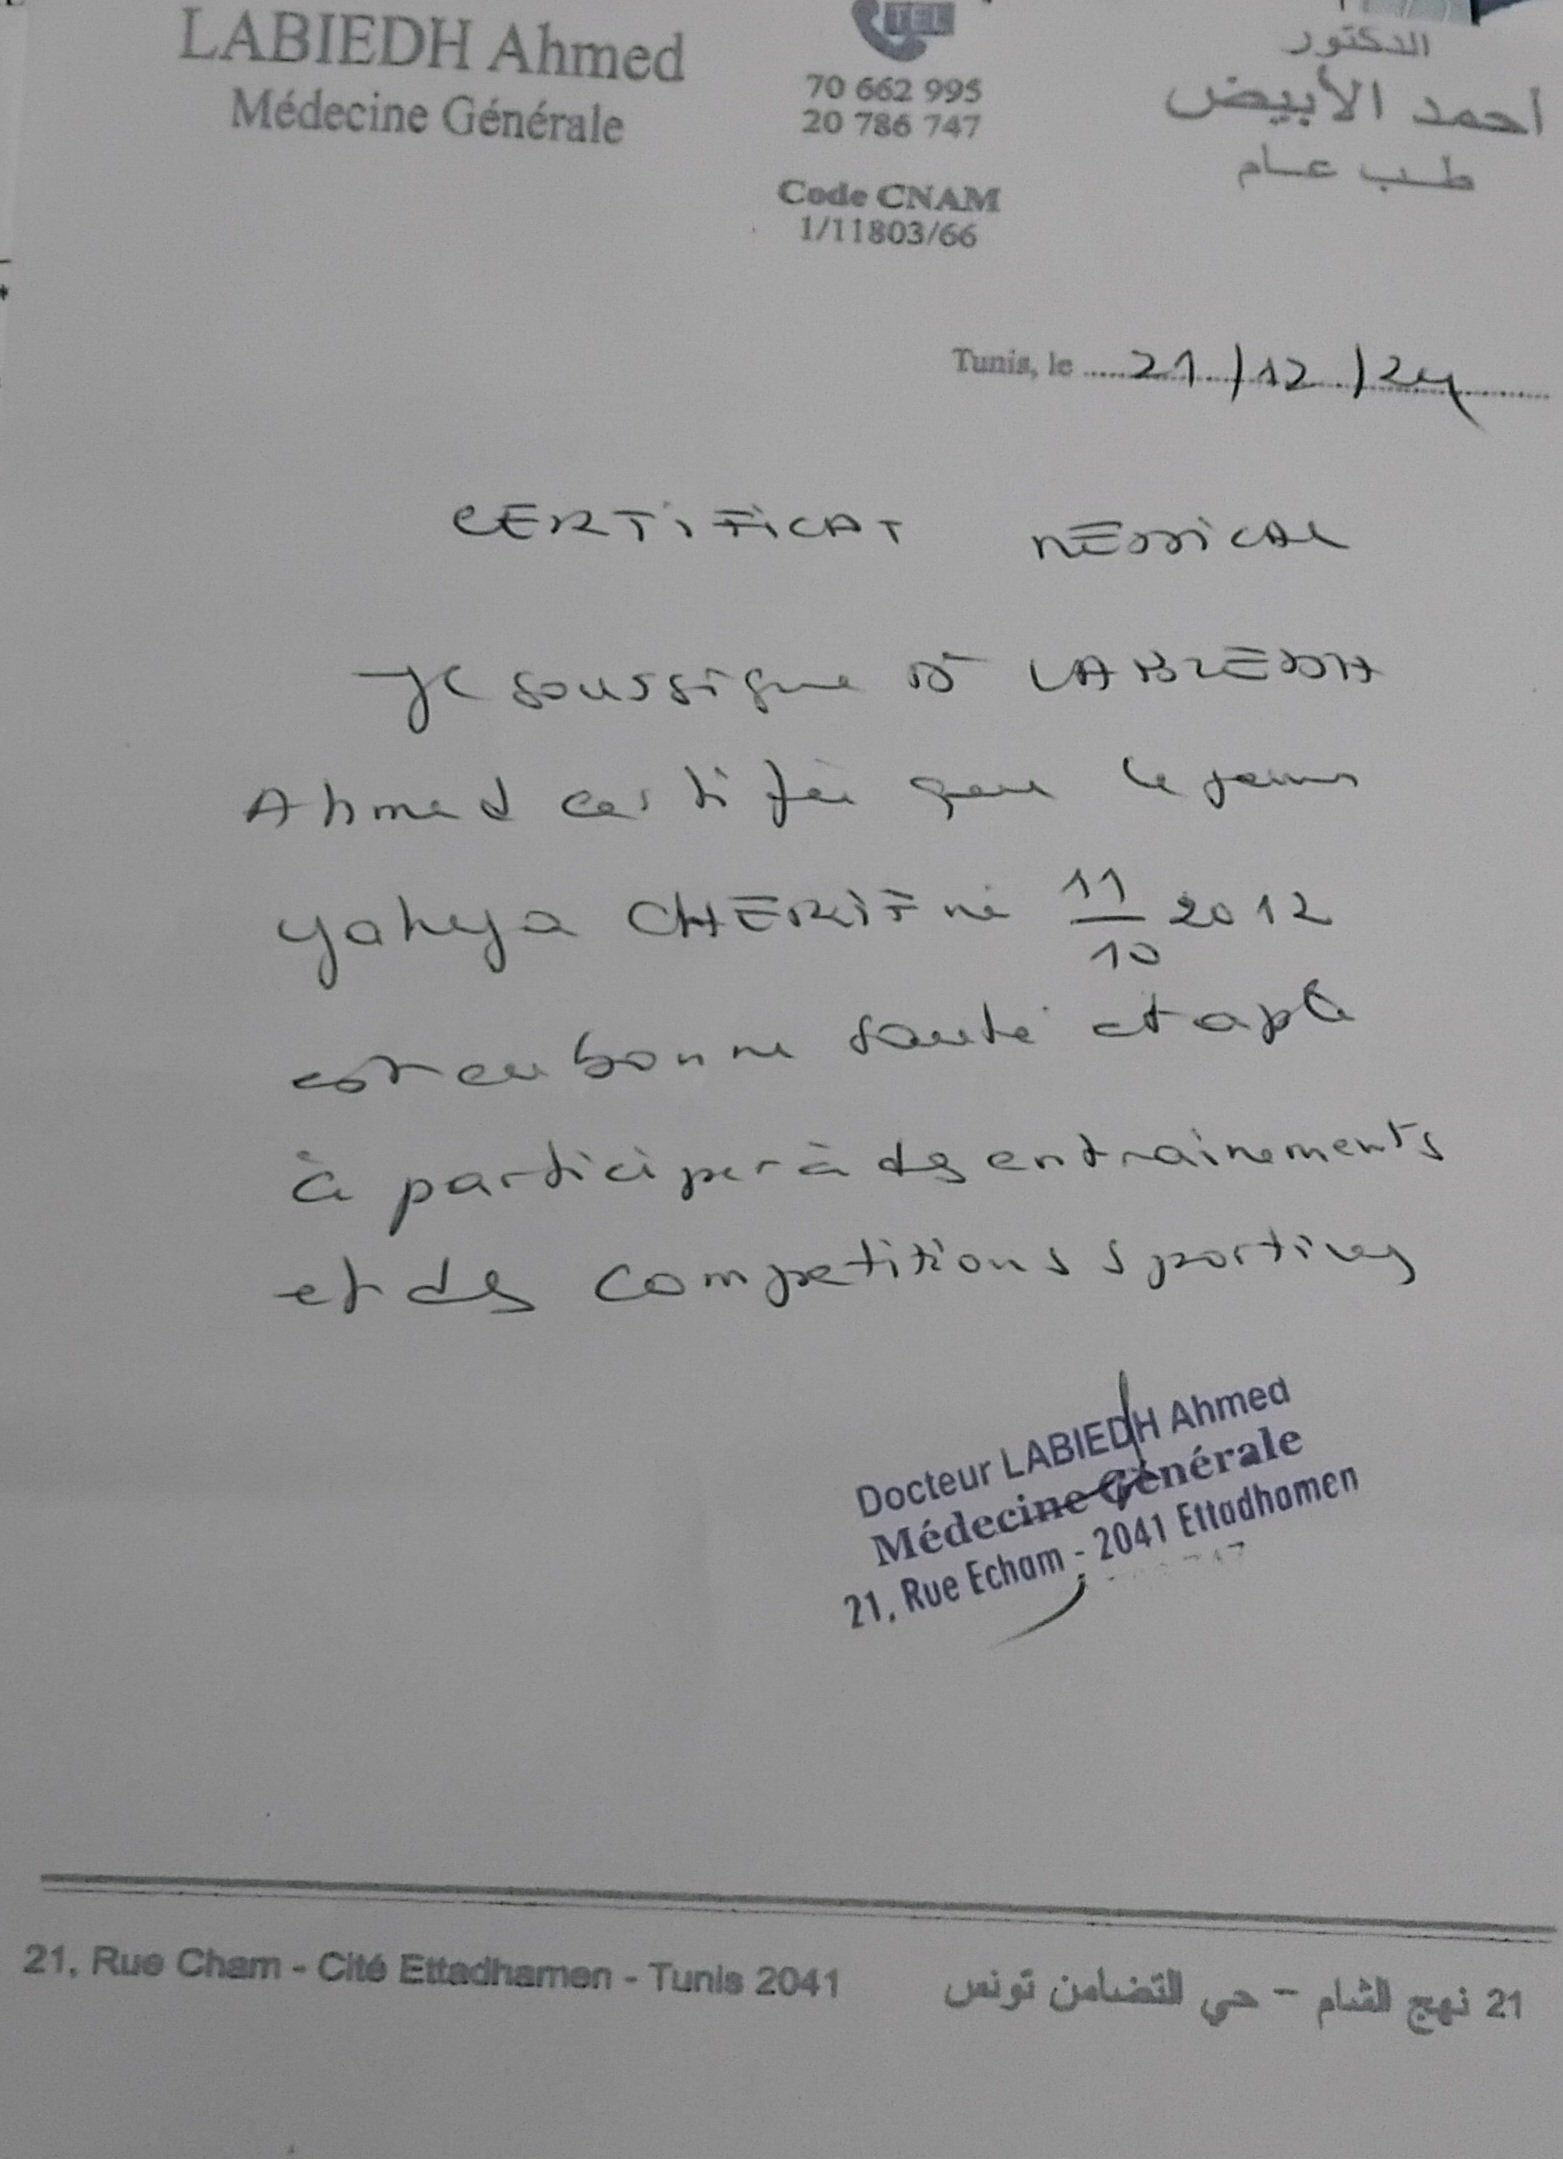 LABIEDH Ahmed
Médecine Générale
TEL
70 662 995
20 786 747
Code CNAM
1/11803/66
الدكتور
أحمد الأبيض
طب عام
Tunis, le 21/12/24
CERTIFICAT MEDICAL
Je soussigne Dr LABIEDH
Ahmed certifie que le jeune
Yahya CHERIF né 11/10 2012
est en bonne santé et apte
à participer à des entrainements
et des competitions sportives
Docteur LABIEDH Ahmed
Médecine Générale
21, Rue Echam - 2041 Ettadhamen
21, Rue Cham - Cité Ettadhamen - Tunis 2041
21 نهج الشام - حي التضامن تونس